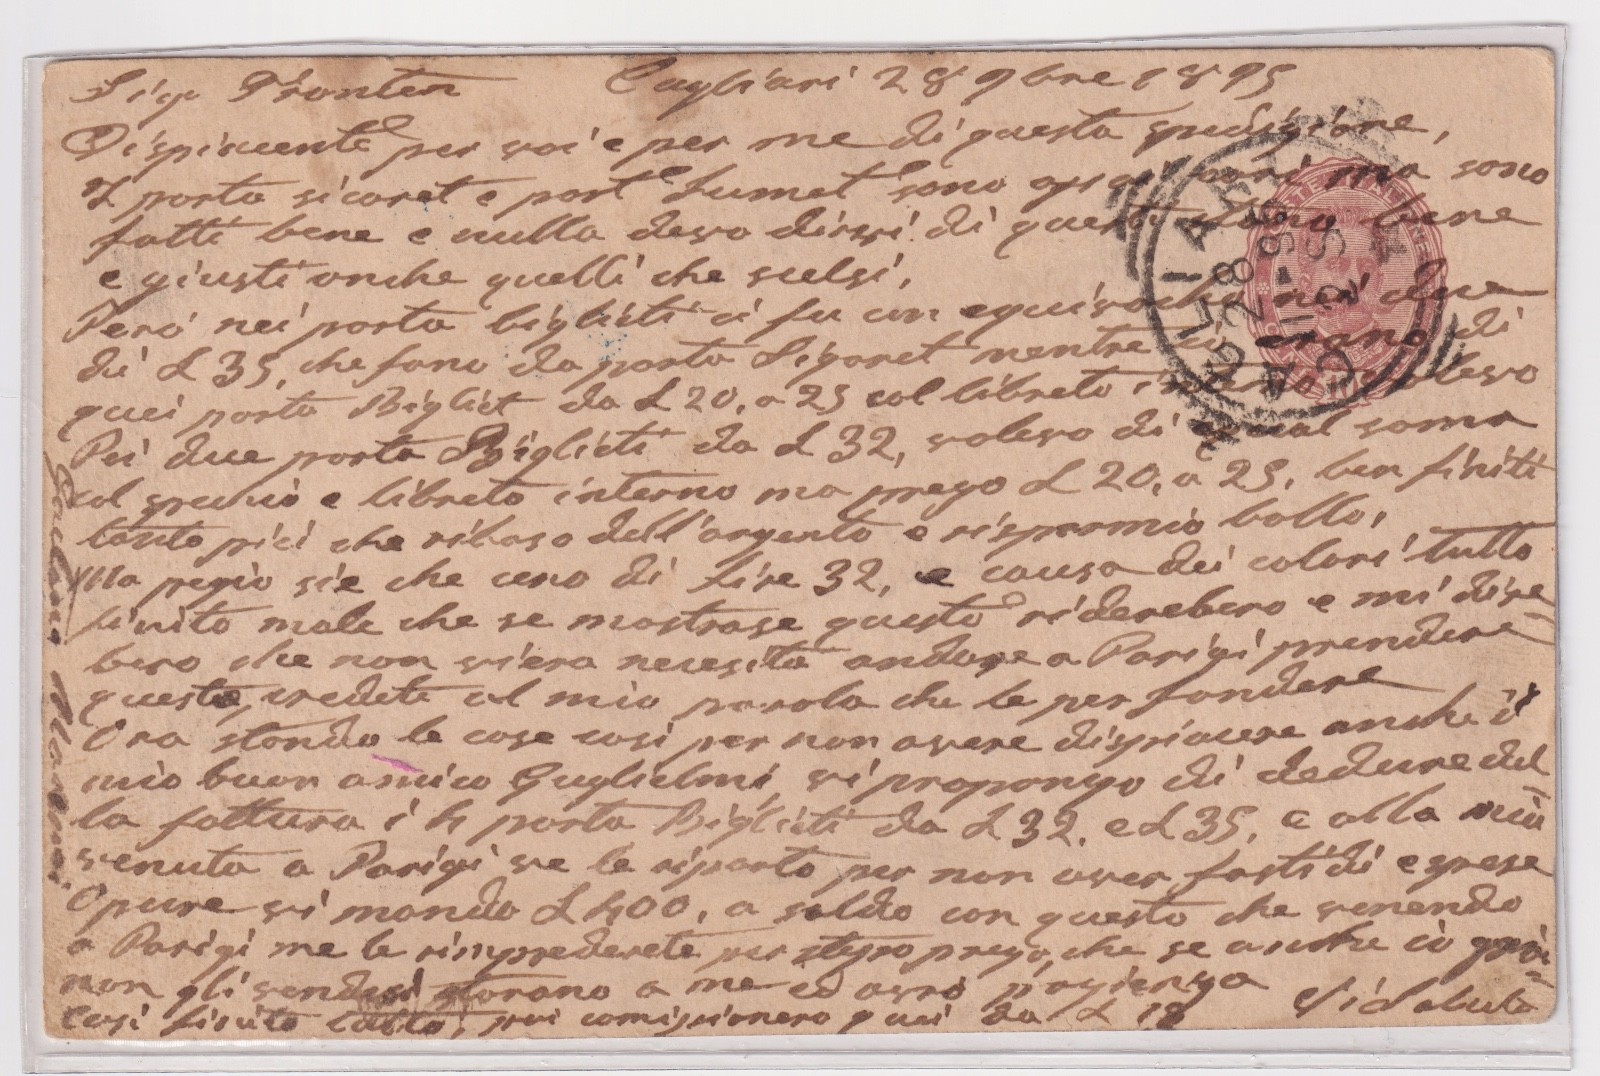 Sigr Fronten Cagliari 28 9bre 1895
Dispiacente per voi e per me di questa spedizione,
I porta sicaret e port Lumet sono ma sono
fatti bene e nulla devo dirvi di questi sono bene
e giusti anche quelli che scelsi,
Però nei porta biglieti ci fu un equivocho nei due
di L 35, che fano da porta Sigaret mentre ci erano di
quei porta Bigliet da L 20, a 25 col libreto interno volevo
Pei due porta Biglieti da L 32, volevo di soma
col spechio e libreto interno ma prego L 20, a 25, ben finiti
tanto pici che ribaso dell'argento e risparmio bollo,
Ma pegio sie che ceno di Lire 32, e causa dei colori tutto
finito male che se mostrase questo riderebero e mi dire
bero che non viera necesità andare a Parigi prendere
questo, credete al mio parola che le per fondere
Ora stando le cose cosi per non avere dispiacere anche il
mio buon amico Guglielmi, vi propongo di dedure del
la fattura i 4 porta Biglieti da L 32, e L 35, e alla mia
venuta a Parigi ve le riporto per non aver fastidi e spese
Opure vi mando L 400, a saldo con questo che venendo
a Parigi me le rimprederete per stesso prego, che se anche io
non gli vendesi storano a me ed avrò pazienza
Cosi finito tutto, poi comissionero quei da L 18 Vi Saluto
Marenzi
CAGLIARI
28 11-95
2 S